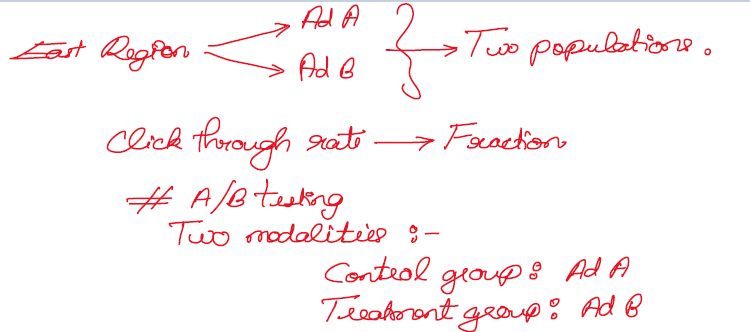 East Region Ad A
Ad B
Two populations.
Click through rate → Fraction
# A/B testing
Two modalities :-
Control group : Ad A
Treatment group : Ad B